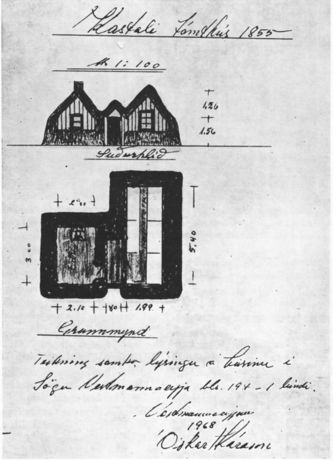 Kastali tómthús 1855
M 1:100
1.20
1.56
Suðurhlið
3.00
5.40
2.10
80
1.99
Grunnmynd
Teikning samkv. lýsingu á húsinu í
Sögu Vestmannaeyja bls. 194 - 1 bindi.
Vestmannaeyjum
1968
Óskar Kárason